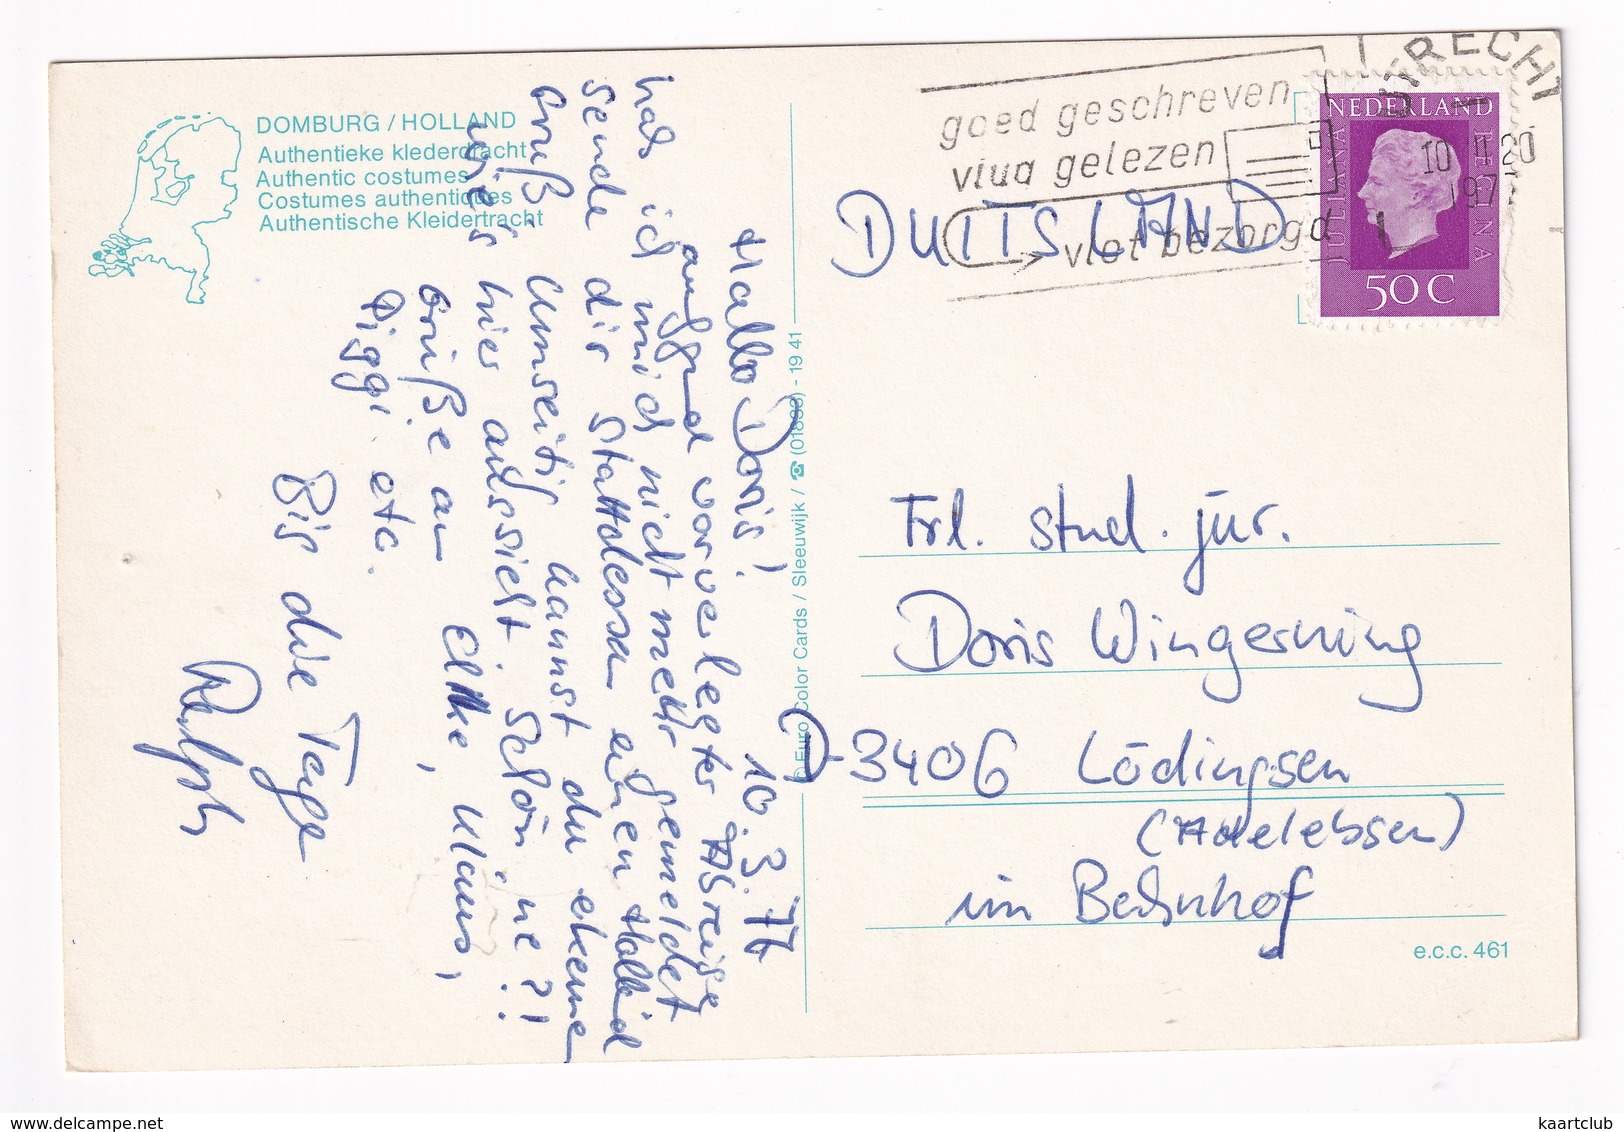 DOMBURG / HOLLAND
Authentieke klederdracht
Authentic costumes
Costumes authentiques
Authentische Kleidertracht
10.3.77
Hallo Doris!
aufgrund vorverlegter Abreise
hab ich mich nicht mehr gemeldet
sende dir stattdessen einen
Gruß. Umseitig kannst du
wie's hier aussieht. Schön, ne?!
Grüße an Elke, Klaus,
Piggi etc.
Bis die Tage
Ralph
© Euro Color Cards / Sleeuwijk / ☎ (01833) - 19 41
goed geschreven
vlug gelezen
vlot bezorgd
UTRECHT
NEDERLAND
JULIANA REGINA
50 C
DUITSLAND
Frl. stud. jur.
Doris Wingerning
D-3406 Lödingsen
(Adelebsen)
im Bahnhof
e.c.c. 461
kaartclub